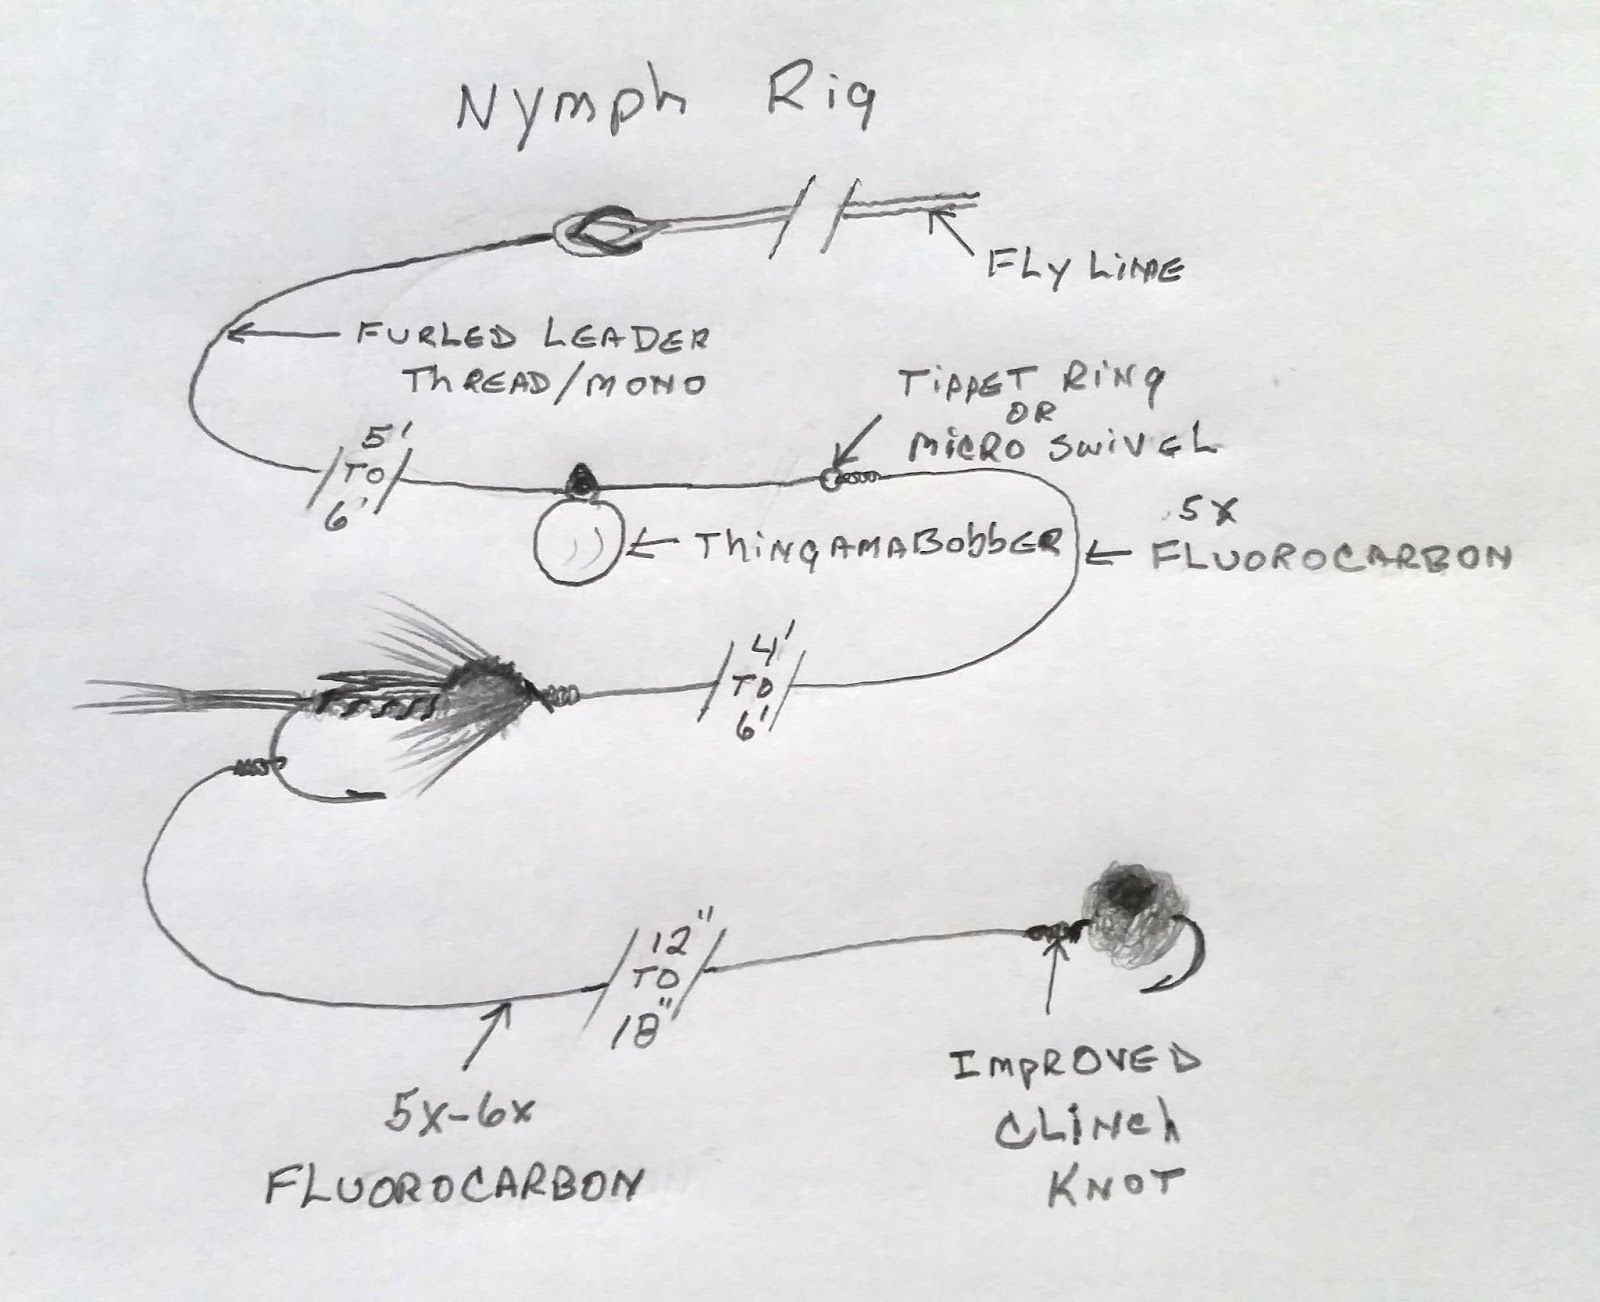 Nymph Rig
FLY LINE
FURLED LEADER
THREAD/MONO
TIPPET RING
OR
MICRO SWIVEL
5'
TO
6'
THINGAMABOBBER
5X
FLUOROCARBON
4'
TO
6'
12"
TO
18"
5X-6X
FLUOROCARBON
IMPROVED
CLINCH
KNOT